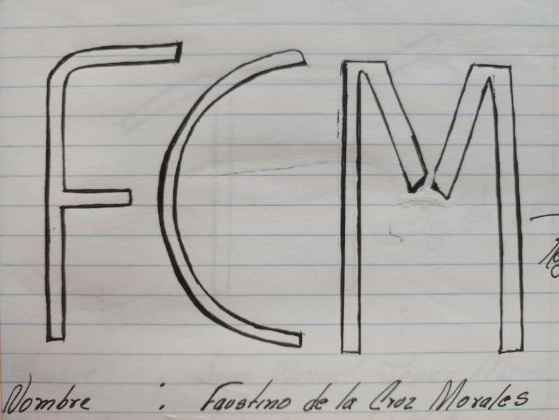 FCM
Nombre : Faustino de la Croz Morales